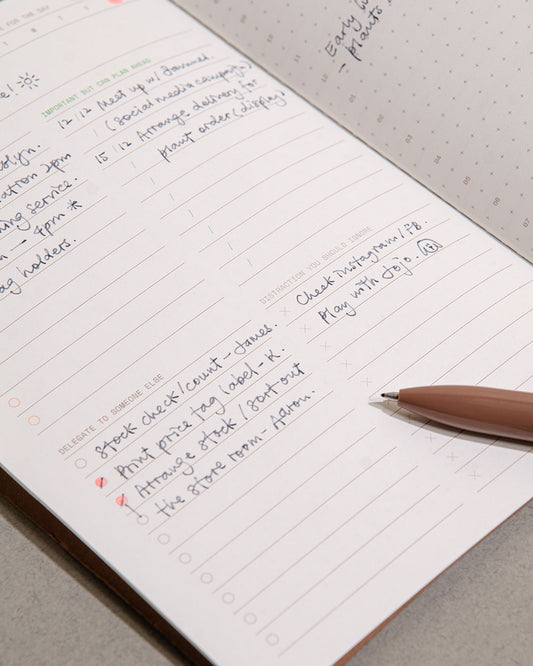 FOR THE DAY
IMPORTANT BUT CAN PLAN AHEAD
12 | 12 Meet up w/ Jammed.
(social media campaign)
15 | 12 Arrange delivery for
plant order (display)
2pm
service.
- 4pm *
holders.
DISTRACTION YOU SHOULD IGNORE
Check instagram / FB.
Play with Jojo.
DELEGATE TO SOMEONE ELSE
Stock check / count - James.
Print price tag label - K.
Arrange stock / sort out
the store room - Aaron.
Early
- plants